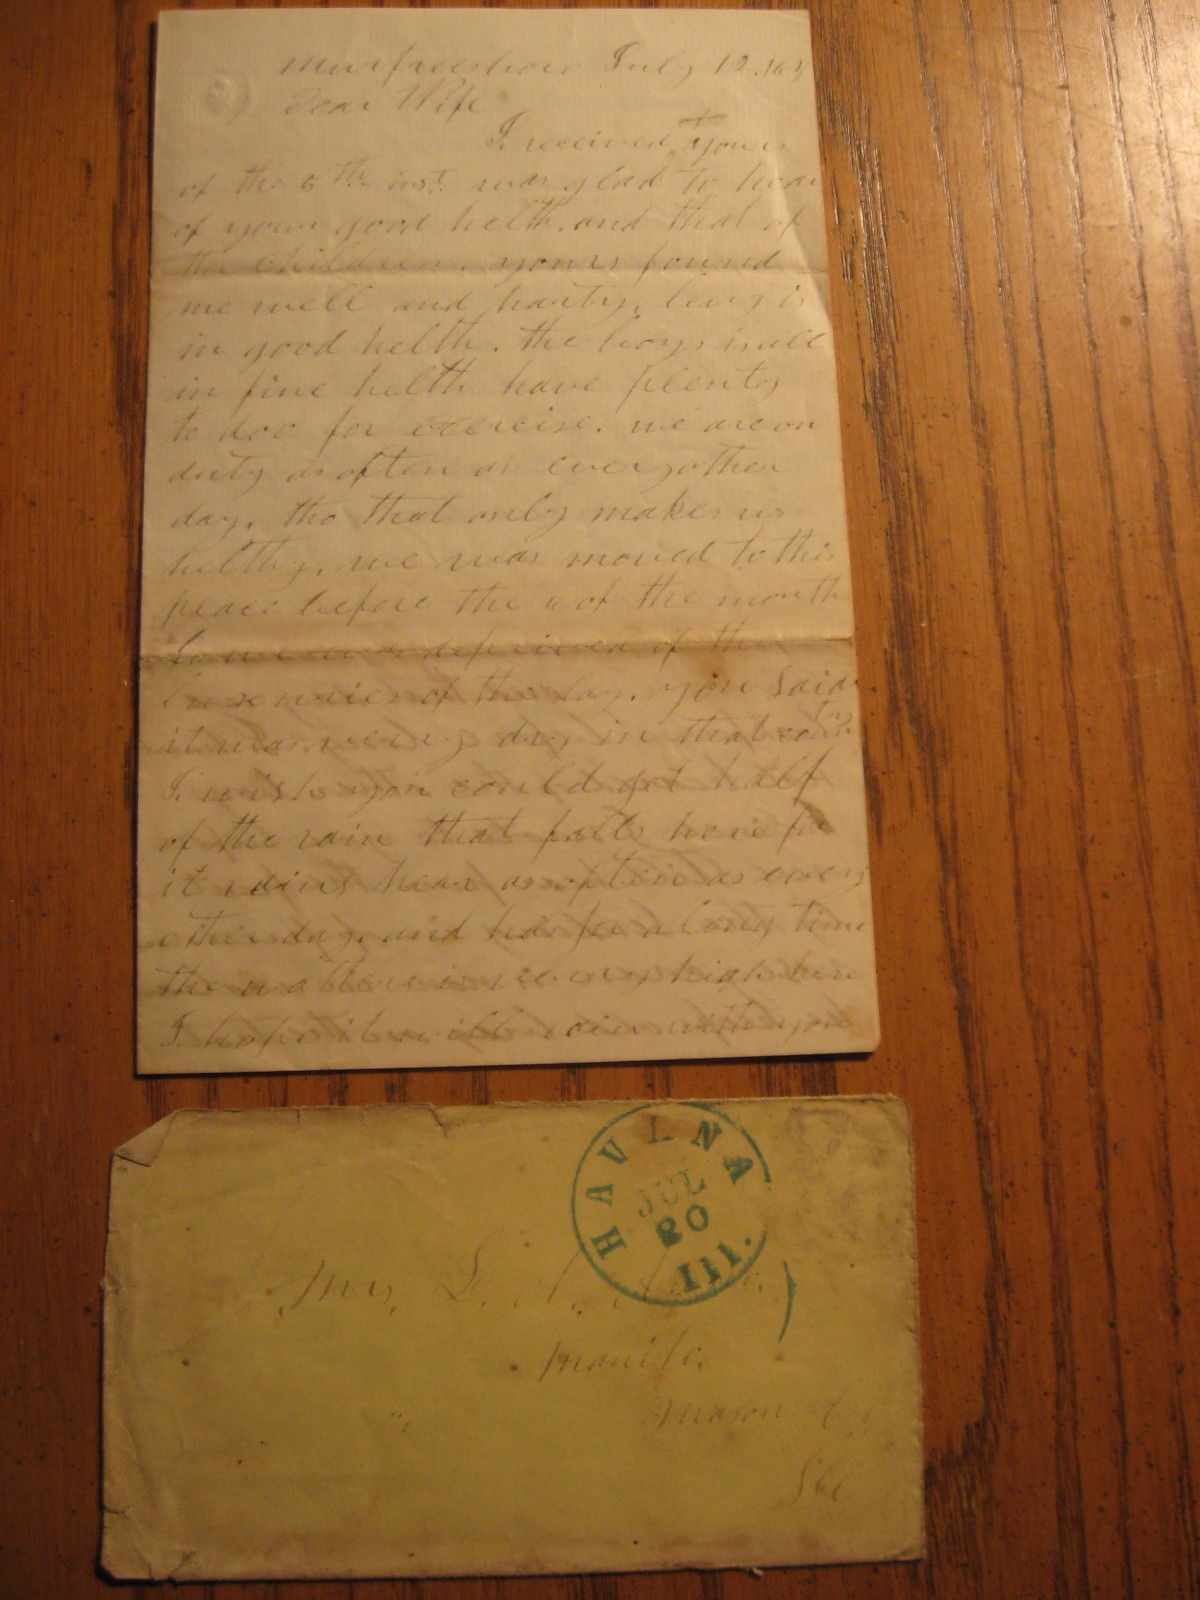 Murfreesboro July 12. 163
Dear Wife
I received yours
of the 6th inst. was glad to hear
of your good helth. and that of
the children. yours found
me well and harty. levy is
in good helth. the boys is all
in fine helth have plenty
to doo for exercise. we are on
duty as often as every other
day. tho that only makes us
helthy. we was moved to this
place before the 4 of the month
so we was deprived of the
of the day. you said
it was very dry in that
I. wish you could get half
of the rain that falls here for
it rains hear as often as every
other day. and has for a long time
the watters is very high here
I. hope it will rain with you
HAVANA
JUL
20
Ill.
Mrs. S. A.
Manito.
Mason Co.
Ill